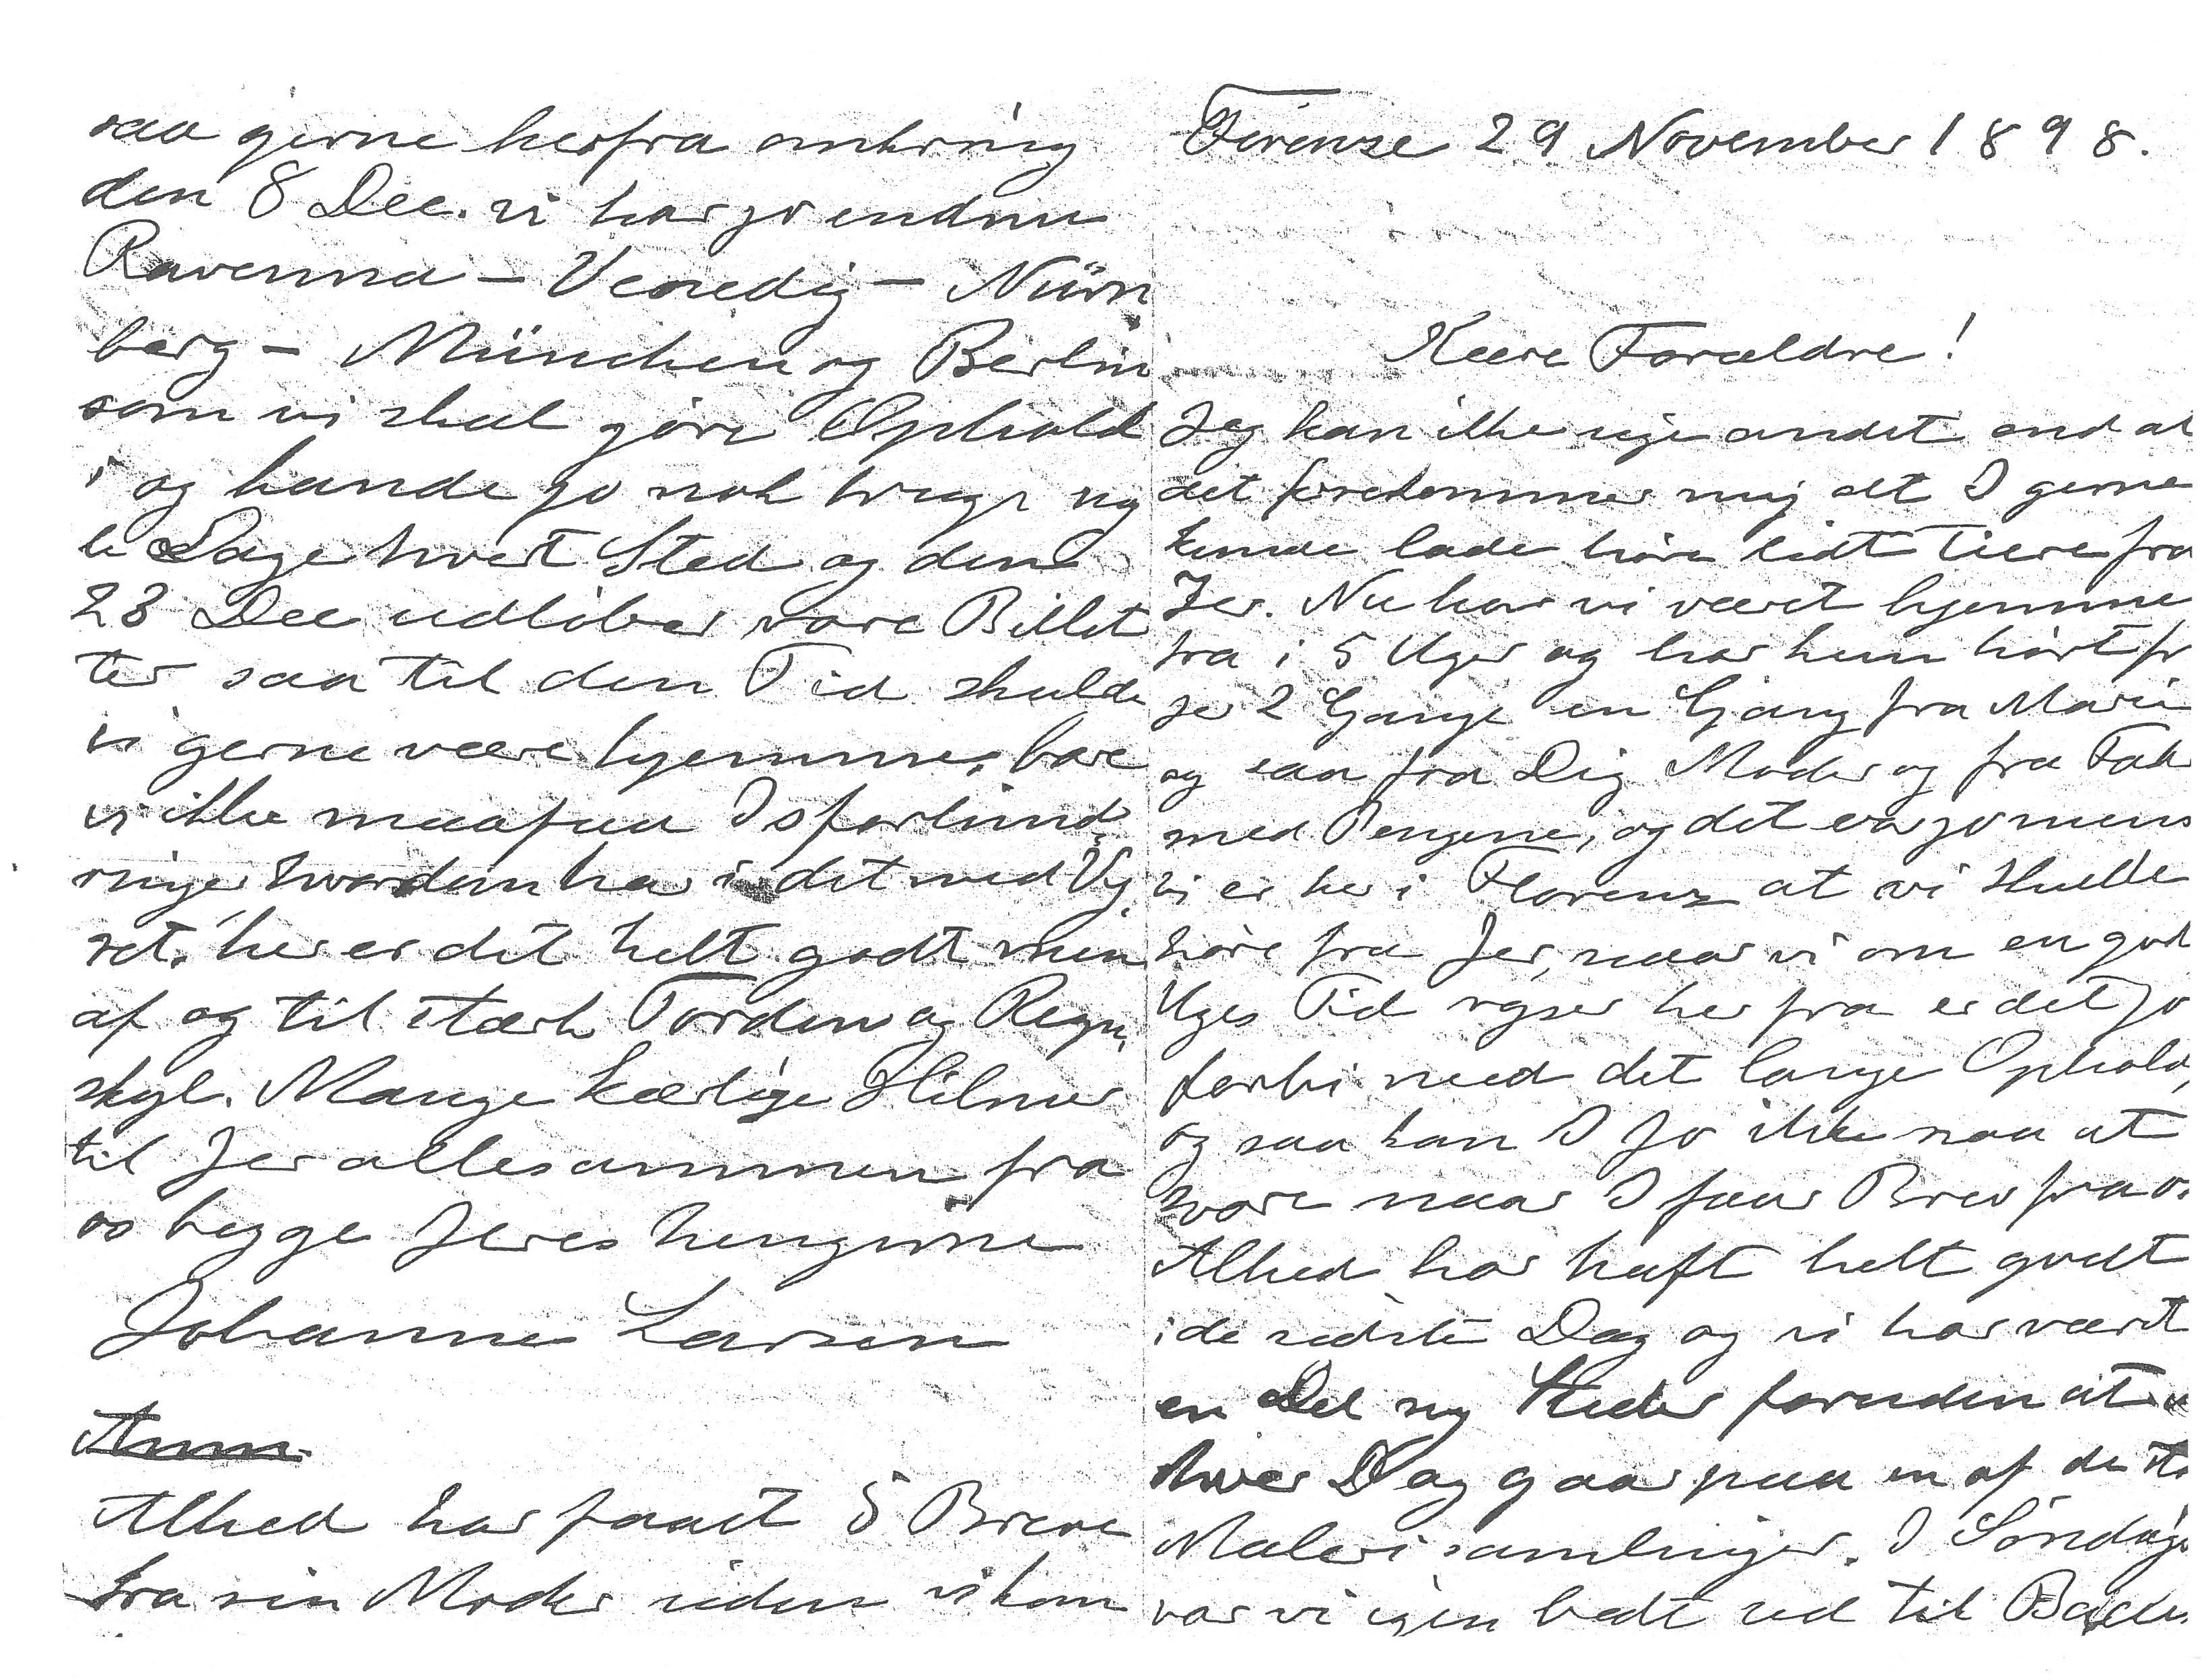 Firenze 29 November 1898.
Kære Forældre!
Jeg kan ikke sige andet end at
det forekommer mig at I gerne
kunde lade høre lidt tiere fra
Jer. Nu har vi været hjemme
fra i 5 Uger og har kun hørt fr
jer 2 Gange en Gang fra Marie
og saa fra Dig Moder og fra Fa
med Pengene, og det er jo mens
vi er her i Florenz at vi skulle
høre fra Jer, naar vi om en god
Uges Tid rejser herfra er det jo
forbi med det lange Ophold,
og saa kan I jo ikke naa at
svare naar I faar Brev fra o
Alhed har haft helt godt
i de sidste Dag og vi har været
en Del ny Steder foruden at
hver Dag gaar paa en af de st
Malerisamlinger. I Søndags
var vi igen bedt ud til
saa gerne herfra omkring
den 8 Dec. vi har jo endnu
Ravenna - Venedig - Nürn
berg - München og Berlin
som vi skal gøre Ophold
i og kunde jo nok bruge no
le Dage hvert Sted og den
23 Dec udløber vore Billet
ter saa til den Tid skulde
vi gerne være hjemme, bare
vi ikke maa faa Isforhind
ringer hvordan har i det med Vej
ret, her er det helt godt men
af og til stærk Torden og Regn
skyl. Mange kærlige Hilsner
til Jer allesammen fra
os begge Jeres hengivne
Johannes Larsen
Alhed har faaet 5 Breve
fra sin Moder siden vi kom